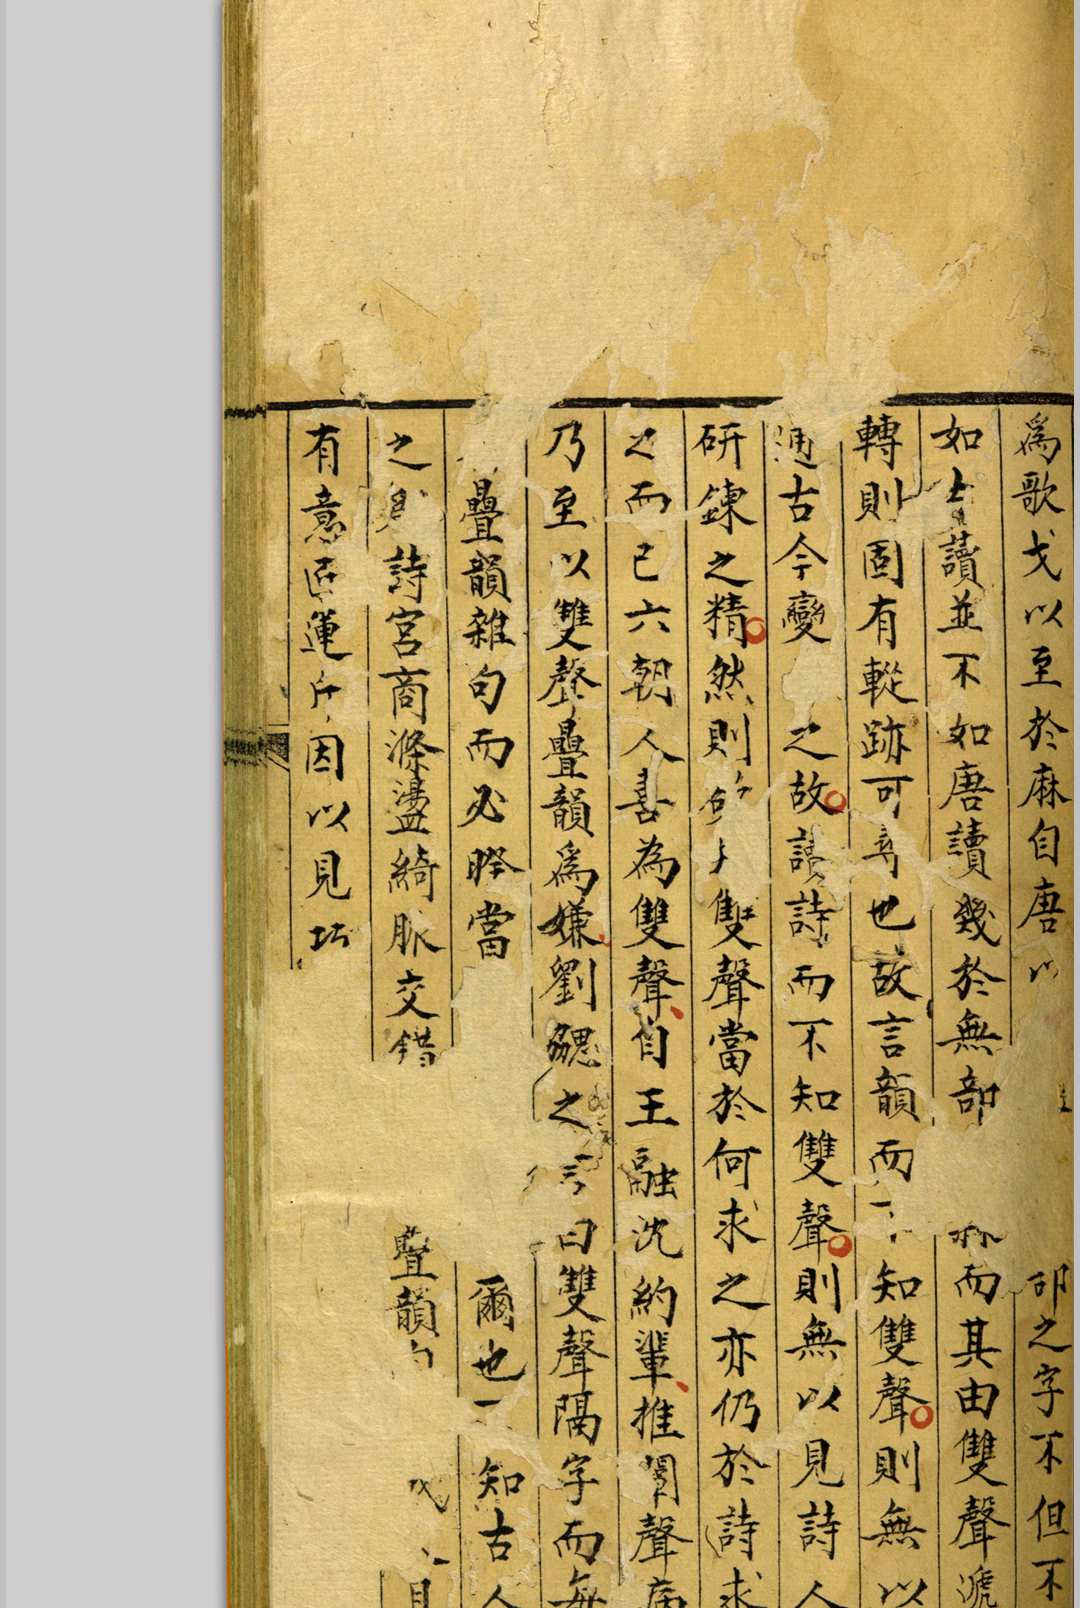 爲歌戈以至於麻自唐以卲之字不但不
如士讀並不如唐讀幾於無部而其由雙聲遞
轉則固有轍跡可尋也故言韻而不知雙聲則無以
通古今變之故讀詩而不知雙聲則無以見詩人
研鍊之精然則雙聲當於何求之亦仍於詩求
之而已六朝人喜為雙聲自王融沈約輩推闡聲病
乃至以雙聲疊韻爲嫌劉勰之言曰雙聲隔字而每
疊韻雜句而必睽當爾也不知古人
之詩宮商滌盪綺脈交錯疊韻見
有意匠運斤因以見